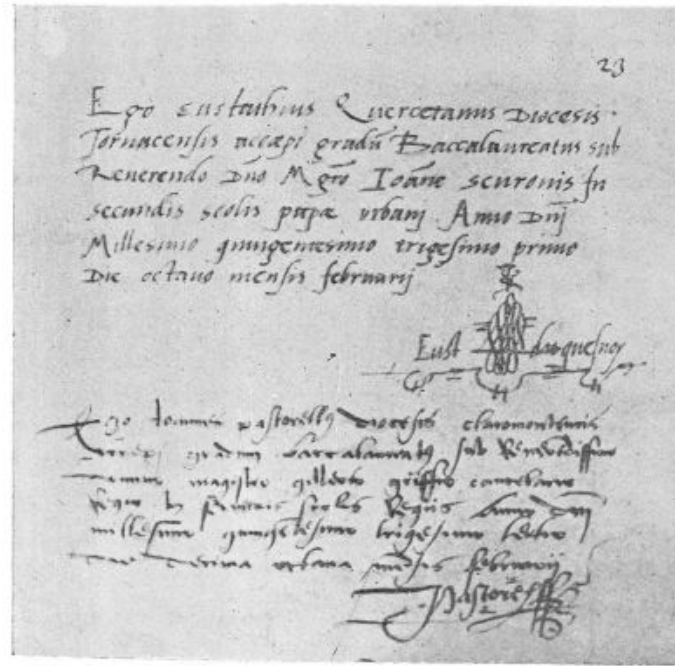 23
Ego Eustathius Quercetanus Diocesis
Tornacensis accæpi gradū Baccalaureatus sub
Reverendo Dño Mgrō Ioāne scuronis In
secundis scolis papæ urbani. Anno Dñj
Millesimo quingentesimo trigesimo primo
Die octavo mensis februarij
Eust du quesnoy
Ego Ioannes pastorellus diocesis claromontensis
accepi gradum baccalaureatus sub Reverendissimo
domino magistro gilleberto griffio
Regio in scolis Regiis Anno Dñj
millesimo quingētesimo trigesimo
die decima urbana mēsis februarii
Pastorell